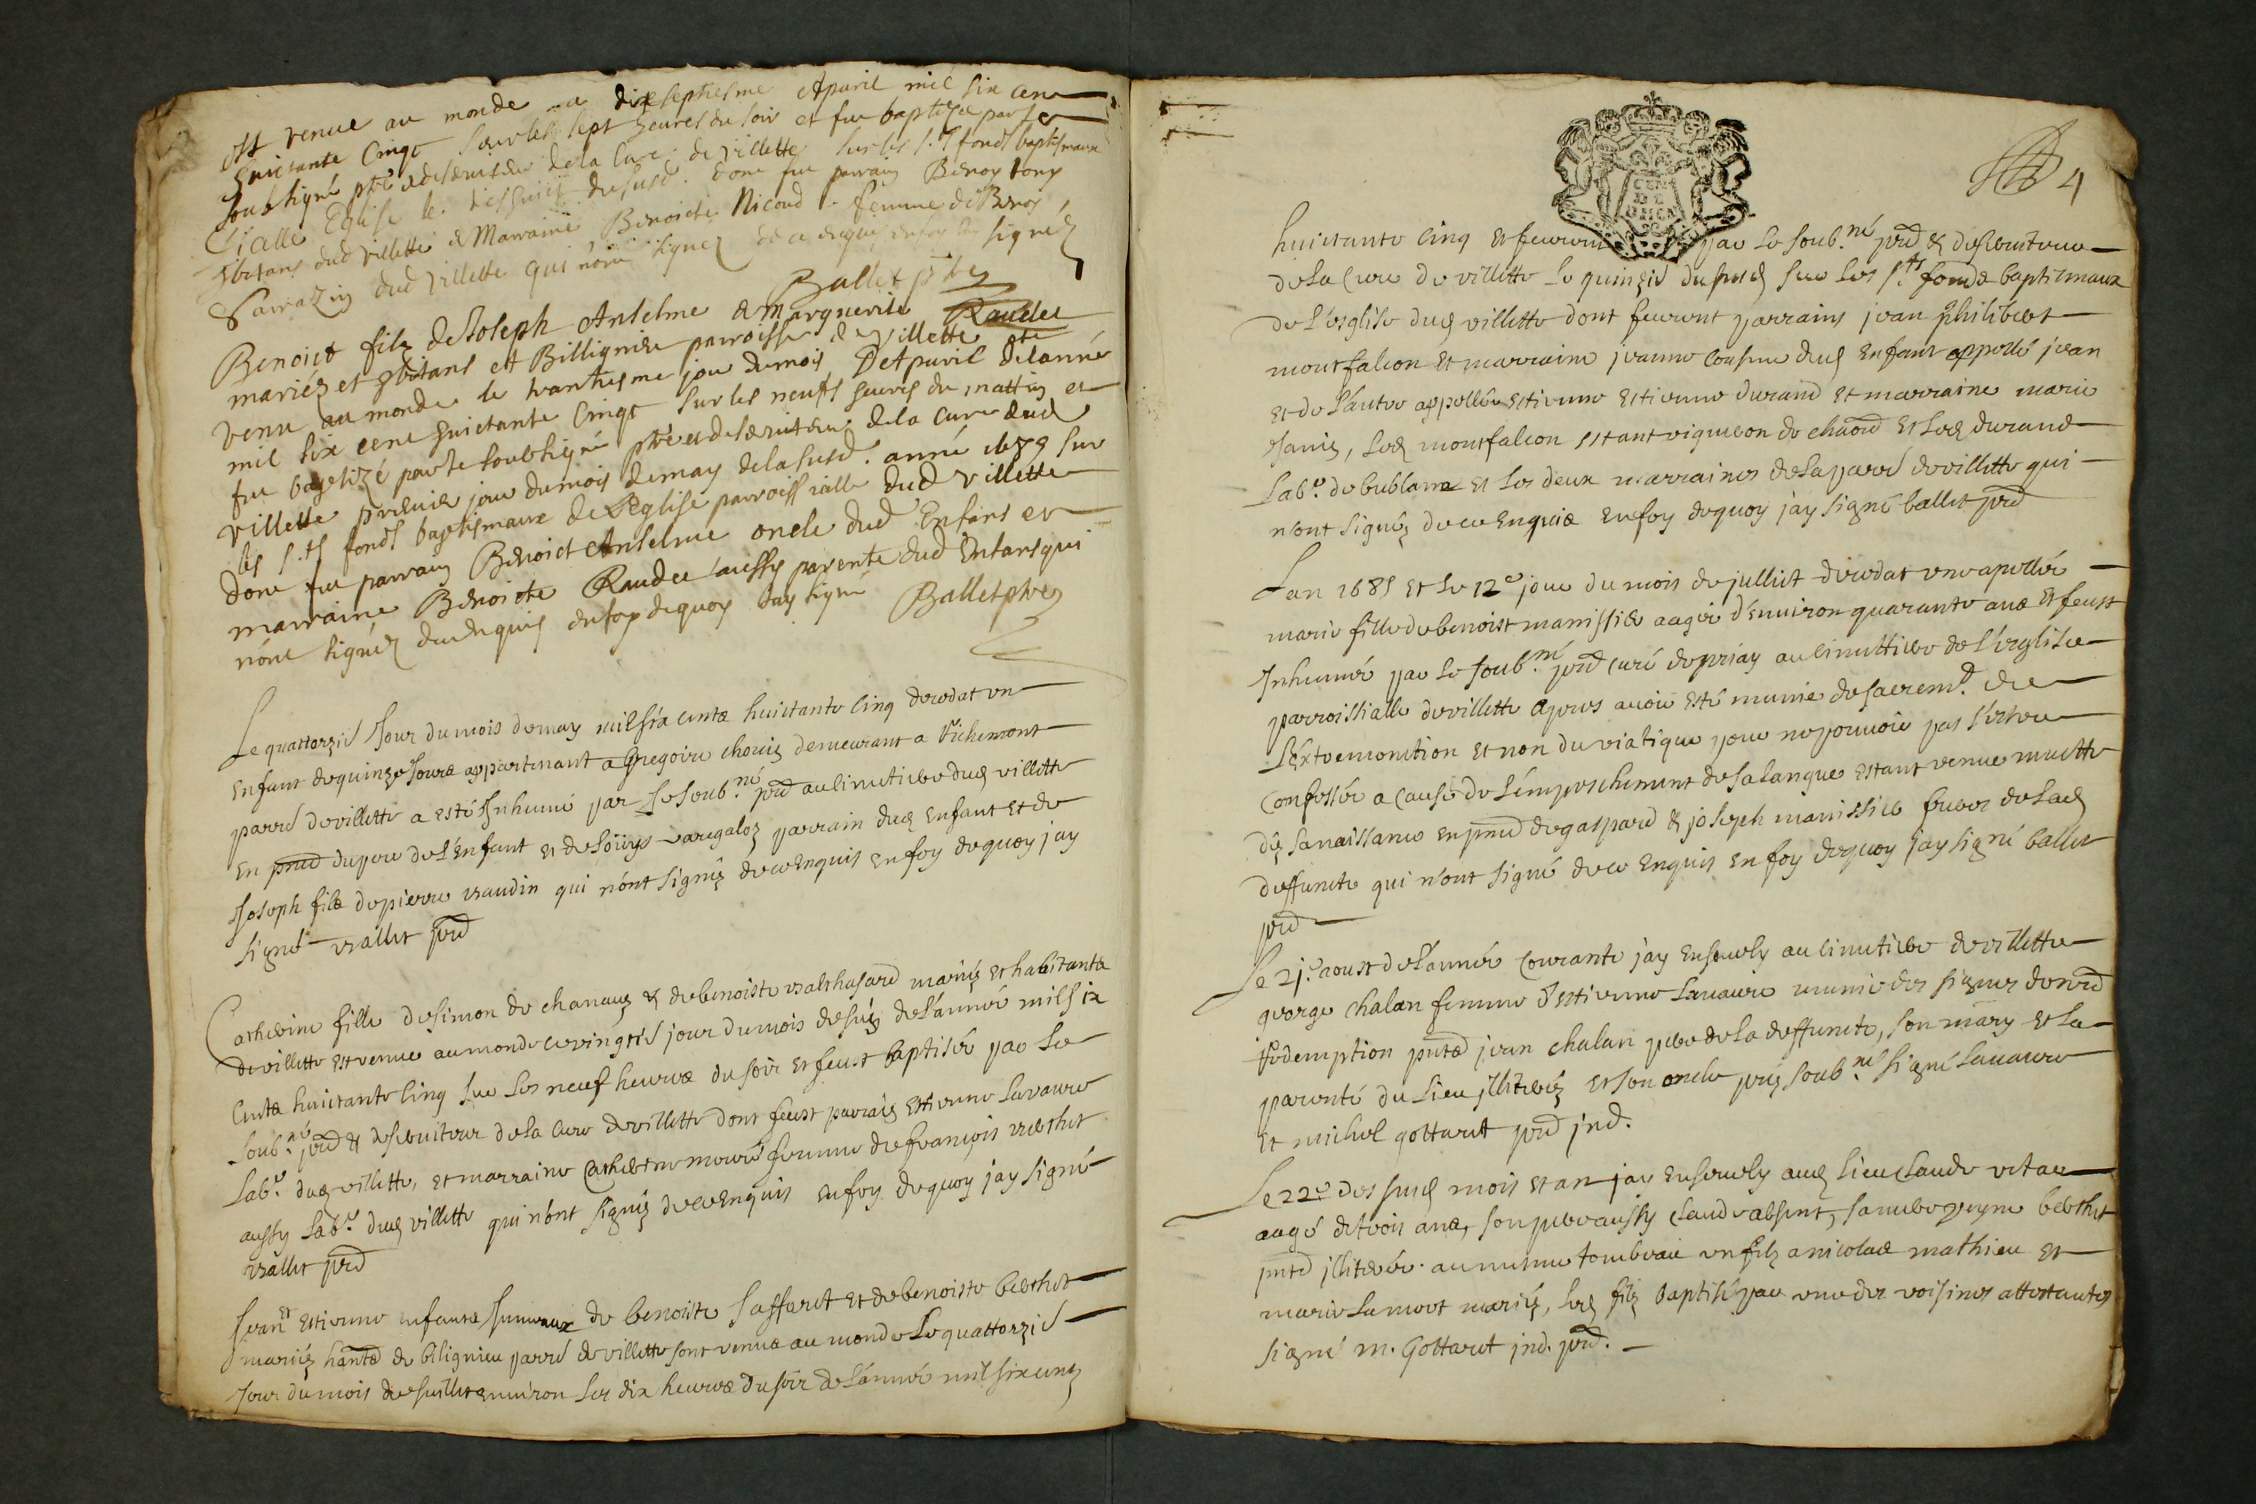 est venue au monde dixseptiesme Apuril mil six cens
huictante cinqt sur les sept heures du soir et fut baptizé par le
soubsigné ptre et deseruiteur de la Cure de villette sur les s.ts fonds baptismaux
d'icelle Eglise le susd. dont fut parrain Benoy tony
hbitans dud villette & Marraine Benoicte Nicoud femme de Benoy
Sarrazin dud villette qui nont signez de ce enquis signé
Ballet ptre
Benoict filz de Joseph Anselme & Marguerite Raudet
mariéz et hbitans a Billignieu parroisse de villette est
venu au monde le trantiesme jour du mois D'Apuril de lanné
mil six cent huictante cinqt sur les neufs heures du mattin et
fut baptizé par le soubsigné ptre et deseruiteur de la cure dud
villette premier jour du mois de may de la susd. anné sur
les s.ts fonds baptismaux de l'Eglise parroissialle dud villette
dont fut parrain Benoict Anselme oncle dud Enfans et
marraine Benoicte Raudet aussy parente dud Enfans qui
nont signéz de ce enquis en foy de quoy Jay signé Ballet ptre
Le quattorzie Jour du mois de may mil six centz huictante cinq deceda un
enfant de quinze Jours appartenant a Gregoire chouiz demeurant a Richemont
parre de villette a esté Inhumé par Le soub.né ptre au cimetiere dud villette
en pnce du pere de L'enfant et de Louys varegaloz parrain dud Enfant et de
Joseph filz de pierre vaudin qui n'ont signéz de ce Enquis en foy de quoy jay
signé Ballet ptre
Catherine fille de simon de chanauz & de benoiste balthasard mariéz et habitantz
de villette est venue au monde le vingtie jour du mois de Juiz de L'année mil six
centz huictante cinq sur Les neuf heures du soir et feust baptisée par Le
soub.né ptre & deseruiteur de La Cure de villette dont feust parrain Estienne Lavaure
Lab.r dud villette, et marraine Catherine femme de françois berthet
aussy Lab.r dud villette qui n'ont signéz de ce Enquis en foy de quoy j'ay signé
Ballet ptre
Jean et Estienne enfants Jumeaux de benoiste Jaffaret et de benoiste berthet
mariéz habitants de bilignieu parre de villette sont venus au monde Le quattorzie
Jour du mois de Juillet enuiron Les dix heures du soir de L'année mil six cents
4
huictante cinq et feurent par Le soub.né ptre & deseruiteur
de La Cure de villette Le quinzie du susd sur Les s.ts fonds baptismaux
de L'esglise dud villette dont feurent parrains jean philibert
montfalcon et marraine jeanne cousine dud Enfant appellé jean
et de L'autre appellé estienne Estienne durand et marraine marie
Janiz, Led montfalcon estant vigneron de chaond et Led durand
Lab.r de bublanz et Les deux marraines de La parre de villette qui
n'ont signéz de ce Enquis en foy de quoy j'ay signé ballet ptre
Lan 1685 et Le 12e jour du mois de juillict deceda une apellée
marie fille de benoist manissier aagée d'enuiron quarante ans et feust
Inhumée par Le soub.né ptre curé de priay au cimittiere de L'esglise
parroissialle de villette apres auoir esté munie du sacrem.t de
L'Extremonction et non du viatique pour ne pouuoir pas s'estre
confessée a cause de L'empeschement de sa Langue estant venue muette
dez sa naissance en pnce de gaspard & joseph manissier freres de Lad
deffuncte qui n'ont signé de ce Enquis en foy de quoy j'ay signé ballet
ptre
Le 21e aoust de L'année courante jay enseuely au cimetiere de villette
george chalan femme d'estienne Lauaure munie des signes de nre
redemption pnts jean chalan pere de La deffuncte, son mary et sa
parenté du Lieu illiteréz et son oncle soub.né signé Lauaure
et michel gottaret ptre ind.
Le 22e des susd mois et an jay enseuely aud Lieu Claude
aagé de trois ans, son pere aussy claude absent, sa mere berthet
pnte illiterée. au mesme tombeau un filz a nicolas mathieu et
marie Lamort mariéz, Led filz baptisé par une des voisines attestantes
signé m. Gottaret ind. ptre.